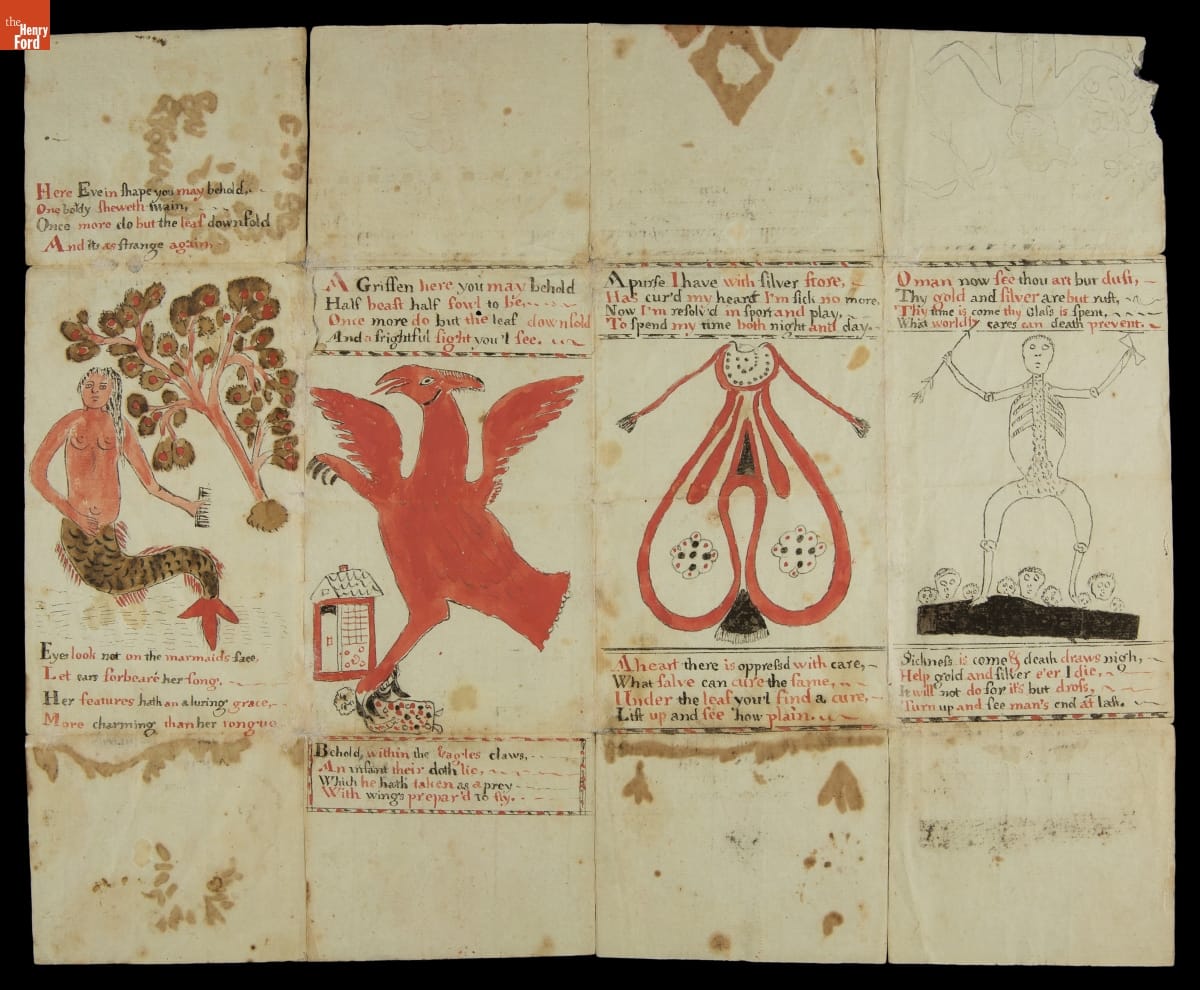 the
Henry
Ford
Here Eve in shape you may behold,
One body sheweth twain,
Once more do but the leaf downfold
And its as strange again
Eyes look not on the marmaids face,
Let ears forbeare her song,
Her features hath an aluring grace,
More charming than her tongue
A Griffen here you may behold
Half beast half fowl to be,
Once more do but the leaf downfold
And a frightful sight you'l see.
Behold, within the Eagles claws,
An infant their doth lie,
Which he hath taken as a prey
With wings prepar'd to fly.
A purse I have with silver store,
Has cur'd my heart I'm sick no more,
Now I'm resolv'd in sport and play,
To spend my time both night and day.
A heart there is oppressd with care,
What salve can cure the same,
Under the leaf you'l find a cure,
Lift up and see how plain.
O man now see thou art but dust,
Thy gold and silver are but rust,
Thy time is come thy Glass is spent,
What worldly cares can death prevent.
Sickness is come & death draws nigh,
Help gold and silver e'er I die,
It will not do for it's but dross,
Turn up and see man's end at last.